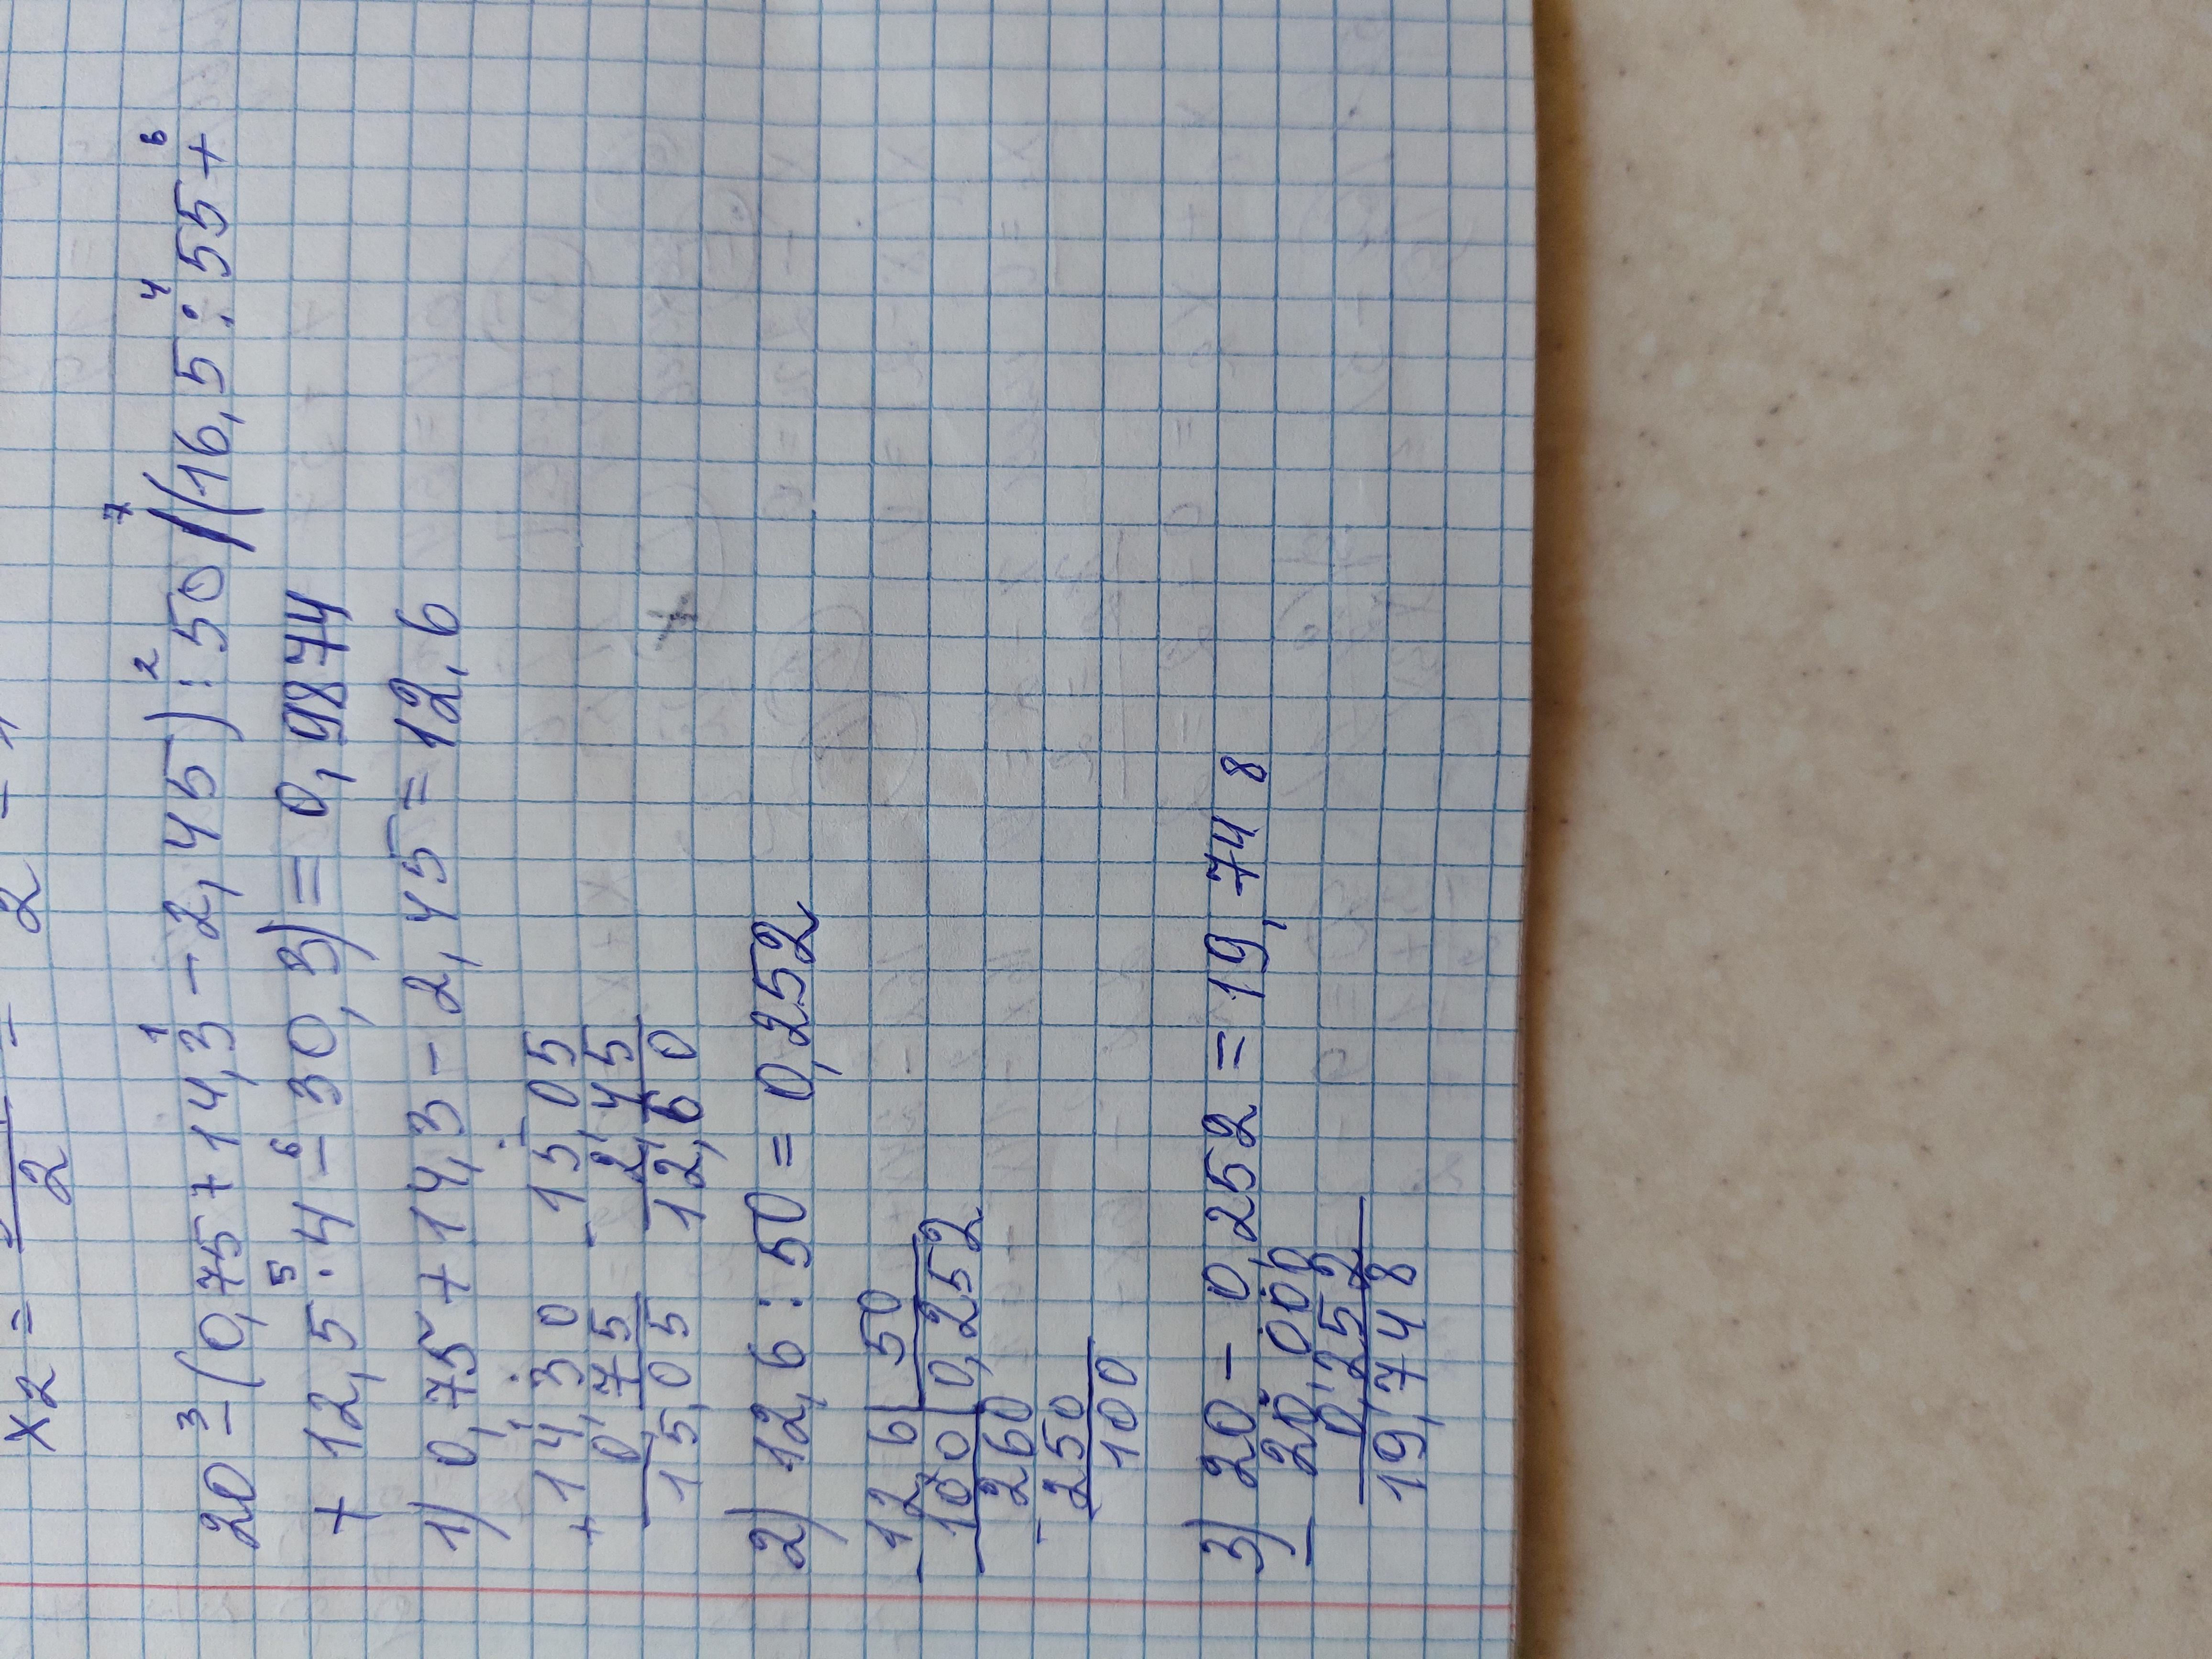 x₂ =
2
2
20 - (0,75 + 14,3 - 2,45) : 50 / (16,5 : 55 +
+ 12,5 : 4 - 30,3) = 0,9874
1) 0,75 + 14,3 - 2,45 = 12,6
+ 14,30 - 15,05
0,75 2,45
15,05 12,60
2) 12,6 : 50 = 0,252
- 126 | 50
100 | 0,252
260
- 250
100
3) 20 - 0,252 = 19,748
- 20,000
0,252
19,748